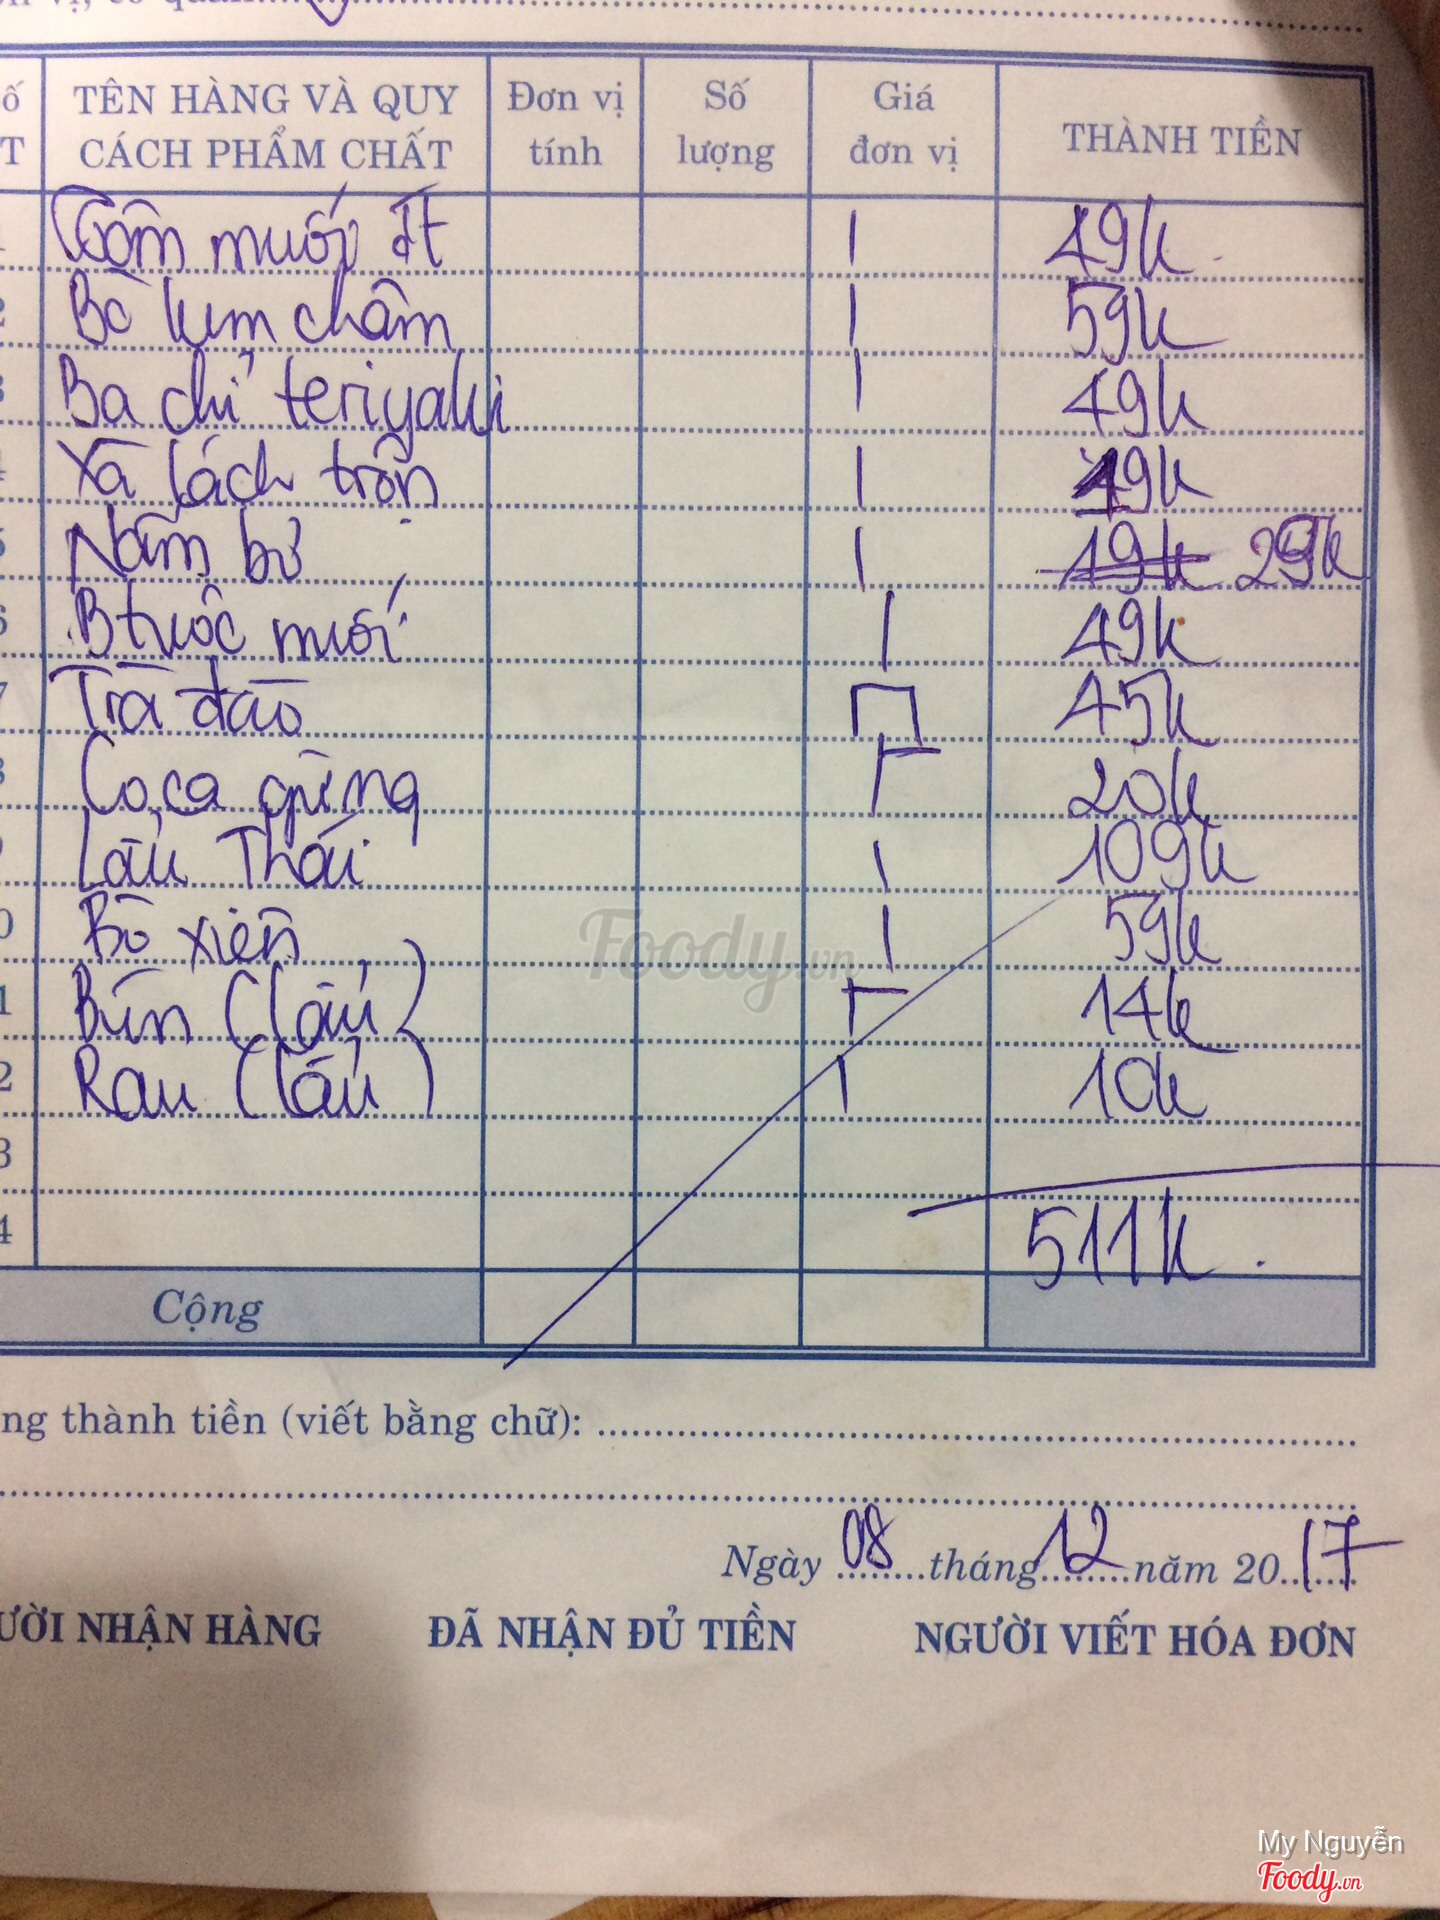 TÊN HÀNG VÀ QUY CÁCH PHẨM CHẤT Đơn vị tính Số lượng Giá đơn vị THÀNH TIỀN
Tôm muối ớt 49k
Bò kim châm 59k
Ba chỉ teriyaki 49k
Xà lách trộn 19k
Nấm bơ 19k 29k
Btuộc muối 49k
Trà đào 45k
Coca gừng 20k
Lẩu Thái 109k
Bò xiên 59k
Bún (lẩu) 14k
Rau (lẩu) 10k
511k
Cộng
thành tiền (viết bằng chữ):
Ngày 08 tháng 12 năm 2017
NHẬN HÀNG ĐÃ NHẬN ĐỦ TIỀN NGƯỜI VIẾT HÓA ĐƠN
Foody.vn
My Nguyễn
Foody.vn